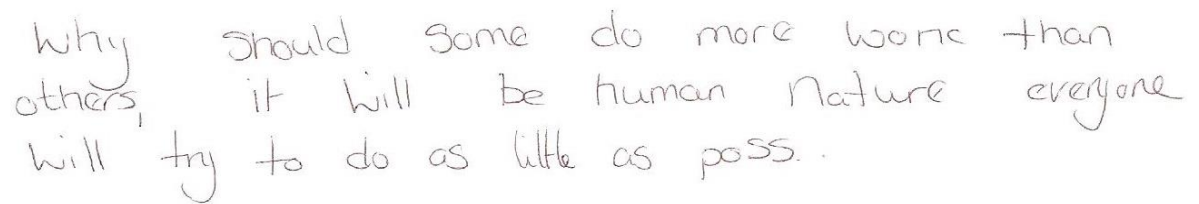 Why should some do more work than
others, it will be human nature everyone
will try to do as little as poss..